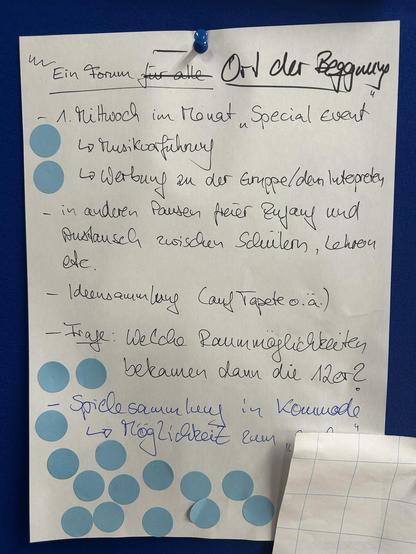 "Ein Forum für alle Ort der Begegnung"
- 1. Mittwoch im Monat „Special Event
↳ Musikvorführung
↳ Werbung zu der Gruppe/dem Interpreten
- in anderen Pausen freier Zugang und
Austausch zwischen Schülern, Lehrern
etc.
- Ideensammlung (auf Tapete o.ä.)
- Frage: Welche Raummöglichkeiten
bekamen dann die 12er?
- Spielesammlung in Kommode
↳ Möglichkeit zum